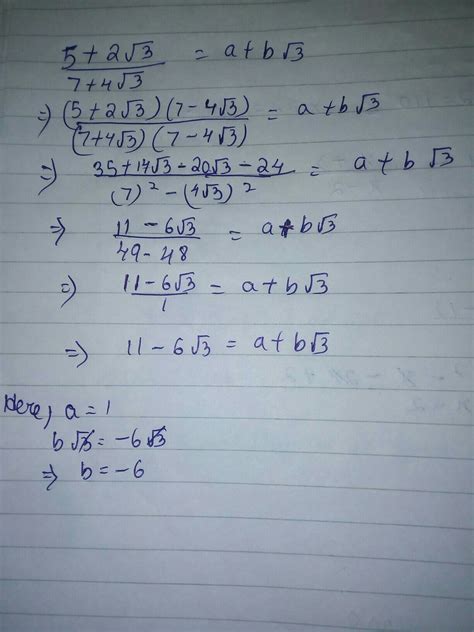 5 + 2√3 / 7 + 4√3 = a + b√3
⇒ (5 + 2√3) (7 - 4√3) / (7 + 4√3) (7 - 4√3) = a + b√3
⇒ 35 + 14√3 - 20√3 - 24 / (7)² - (4√3)² = a + b√3
⇒ 11 - 6√3 / 49 - 48 = a + b√3
⇒ 11 - 6√3 / 1 = a + b√3
⇒ 11 - 6√3 = a + b√3
Here, a = 1
b√3 = -6√3
⇒ b = -6